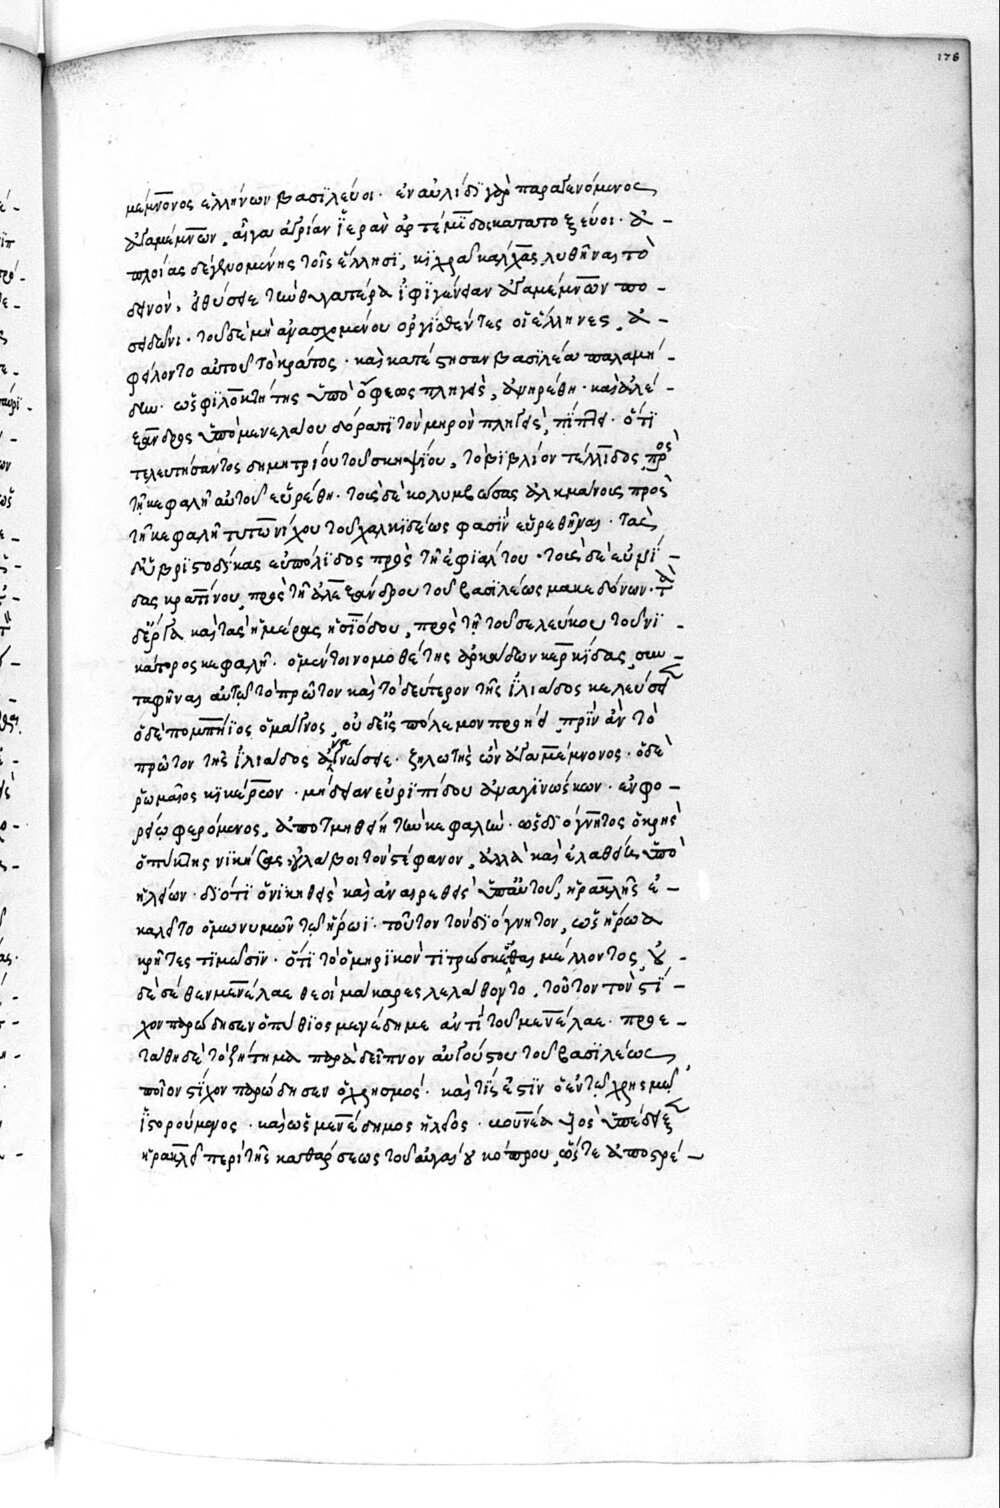 178
μέμνονος ἑλλήνων βασιλεύοι· ἐν αὐλίδι γὰρ παραγενόμενος
ἀγαμέμνων, αἶγα ἀγρίαν ἱερὰν ἀρτέμιδος κατατοξεύοι· ἀ-
πλοίας δὲ γενομένης τοῖς ἕλλησι, κάλχας λυθῆναι τὸ
δεινὸν, ἰφιγένειαν ἀγαμέμνων πο-
σειδῶνι· τοῦ δὲ μὴ ἀνασχομένου ὀργισθέντες οἱ ἕλληνες, ἀ-
φείλοντο αὐτοῦ τὸ κράτος· καὶ κατέστησαν βασιλέα παλαμή-
δην· ὡς φιλοκτήτης ὑπὸ ὄφεως πληγεὶς, ἀνηρέθη· καὶ ἀλέ-
ξανδρος ὑπὸ μενελάου δόρατι τὸν μηρὸν πληγεὶς, ὅτι
τελευτήσαντος δημητρίου τοῦ σκηψίου, τὸ βιβλίον τέλλιδος πρὸς
τῇ κεφαλῇ αὐτοῦ εὑρέθη· τὰς δὲ κολυμβώσας ἀλκμᾶνος πρὸς
τῇ κεφαλῇ τυτωνίχου τοῦ χαλκιδέως φασὶν εὑρεθῆναι· τὰς
δ' ὑβριστοδίκας εὐπόλιδος πρὸς τῇ ἐφιάλτου· τοὺς δὲ εὐνεί-
δας κρατίνου, πρὸς τῇ ἀλεξάνδρου τοῦ βασιλέως μακεδόνων· τὰ
δ' ἔργα καὶ τὰς ἡμέρας ἡσιόδου, πρὸς τῇ τοῦ σελεύκου τοῦ νι-
κάτορος κεφαλῇ· ὁ μέντοι νομοθέτης ἀρκάδων κερκίδας, συν-
ταφῆναι αὐτῷ τὸ πρῶτον καὶ τὸ δεύτερον τῆς ἰλιάδος κελεύσειεν
ὁ δὲ πομπήιος ὁ μάγνος, οὐδ' εἰς πόλεμον προῄει, πρὶν ἂν τὸ
πρῶτον τῆς ἰλιάδος ἀναγνώσειε· ζηλωτὴς ὢν ἀγαμέμνονος· ὁ δὲ
ῥωμαῖος κικέρων· μήδειαν εὐριπίδου ἀναγινώσκων· ἐν φο-
ρείῳ φερόμενος, ἀποτμηθείη τὴν κεφαλήν· ὡς διόγνητος ὁ κρὴς
ὁ πύκτης νικήσας, λάβοι τὸν στέφανον, ἀλλὰ καὶ ἐλαθείη ὑπὸ
ἠλείων· διότι ὁ νικηθεὶς καὶ ἀναιρεθεὶς ὑπ' αὐτοῦ, ἡρακλῆς ἐ-
καλεῖτο ὁμωνυμῶν τῷ ἥρωι· τοῦτον τὸν διόγνητον, ὡς ἥρωα
κρῆτες τιμῶσιν· ὅτι τὸ ὁμηρικὸν τιτρώσκεσθαι μέλλοντος, οὐ-
δὲ σέθεν μενέλαε θεοὶ μάκαρες λελάθοντο, τοῦτον τὸν στί-
χον παρῴδησεν ὁ πύθιος μενέδημε ἀντὶ τοῦ μενέλαε· προε-
τάθη δὲ τὸ ζήτημα παρὰ δεῖπνον αὐγούστου τοῦ βασιλέως,
ποῖον στίχον παρῴδησεν ὁ χρησμός· καὶ τίς ἐστὶν ὁ ἐν τῷ χρησμῷ
ἱστορούμενος· καὶ ὡς μενέδημος ἠλεῖος· βουνέα υἱὸς ὑπέδειξεν
ἡρακλεῖ περὶ τῆς καθάρσεως τοῦ αὐγείου κόπρου, ὥστε ἀποστρέ-